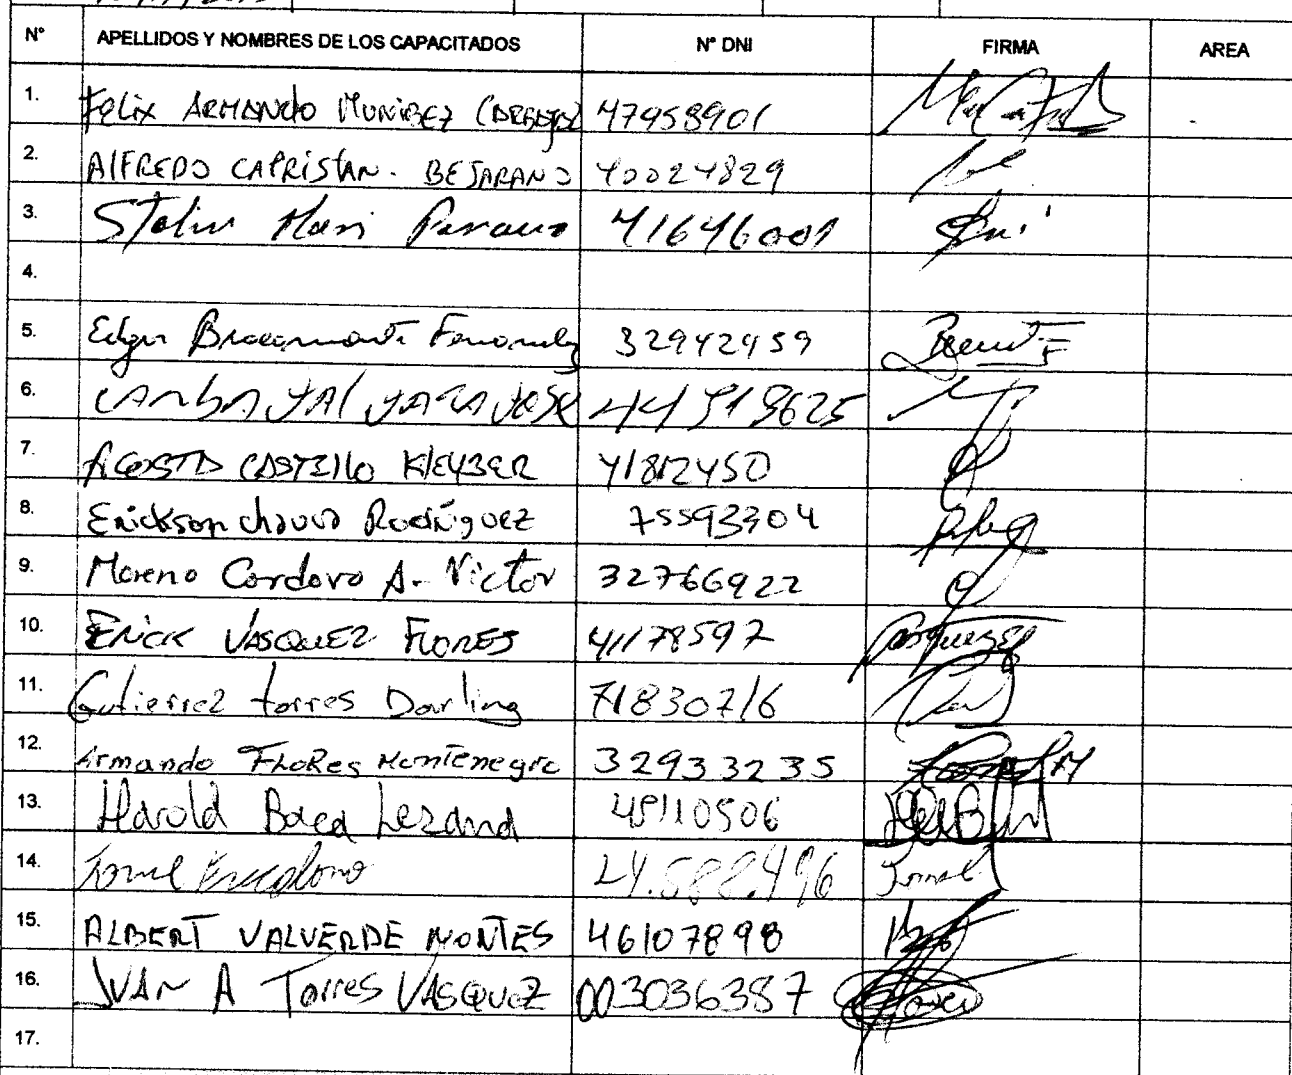 N° APELLIDOS Y NOMBRES DE LOS CAPACITADOS N° DNI FIRMA AREA
1. Felix ARMANDO 47958901
2. AlFREDO CAPRISTAN. BEJARANO 40024829
3. Stalin 41646001
4.
5. Edgar Bracamonte 32942459
6. CARBAJAL JARA JOSE
7. ACOSTA CASTILLO KLEYBER 41812450
8. Erickson Rodriguez 75593304
9. Moreno Cordova A. Victor 32766922
10. ERICK VASQUEZ FLORES 41178597
11. Gutierrez torres Darling 71830716
12. Armando FLORes Montenegro 32933235
13. Harold Baca Lezama 48110506
14. 24.588.496
15. ALBERT VALVERDE MONTES 46107898
16. JUAN A Torres VASQUEZ 003036387
17.